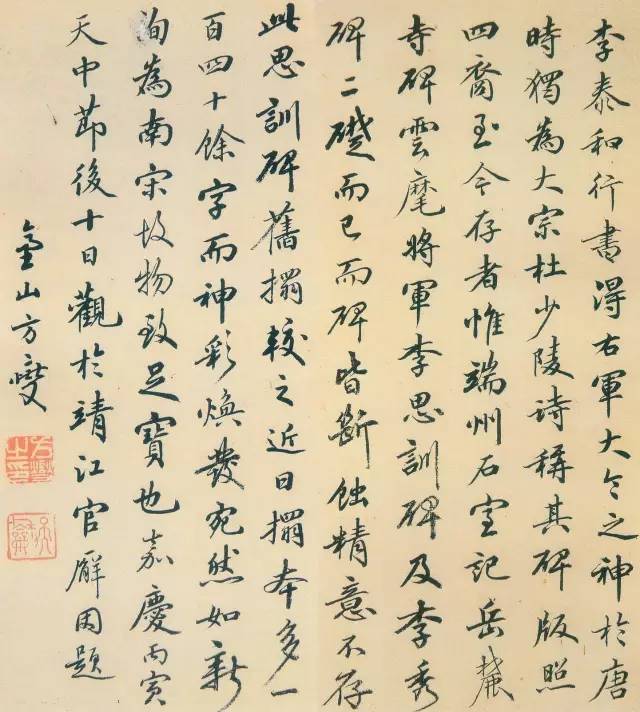 李泰和行書得右軍大令之神於唐
時獨為大宗杜少陵詩稱其碑版照
四裔至今存者惟端州石室記岳麓
寺碑雲麾將軍李思訓碑及李秀
碑二礎而已而碑皆斷蝕精意不存
此思訓碑舊搨較之近日搨本多一
百四十餘字而神彩煥發宛然如新
洵為南宋故物致足寶也嘉慶丙寅
天中節後十日觀於靖江官廨因題
金山方燮